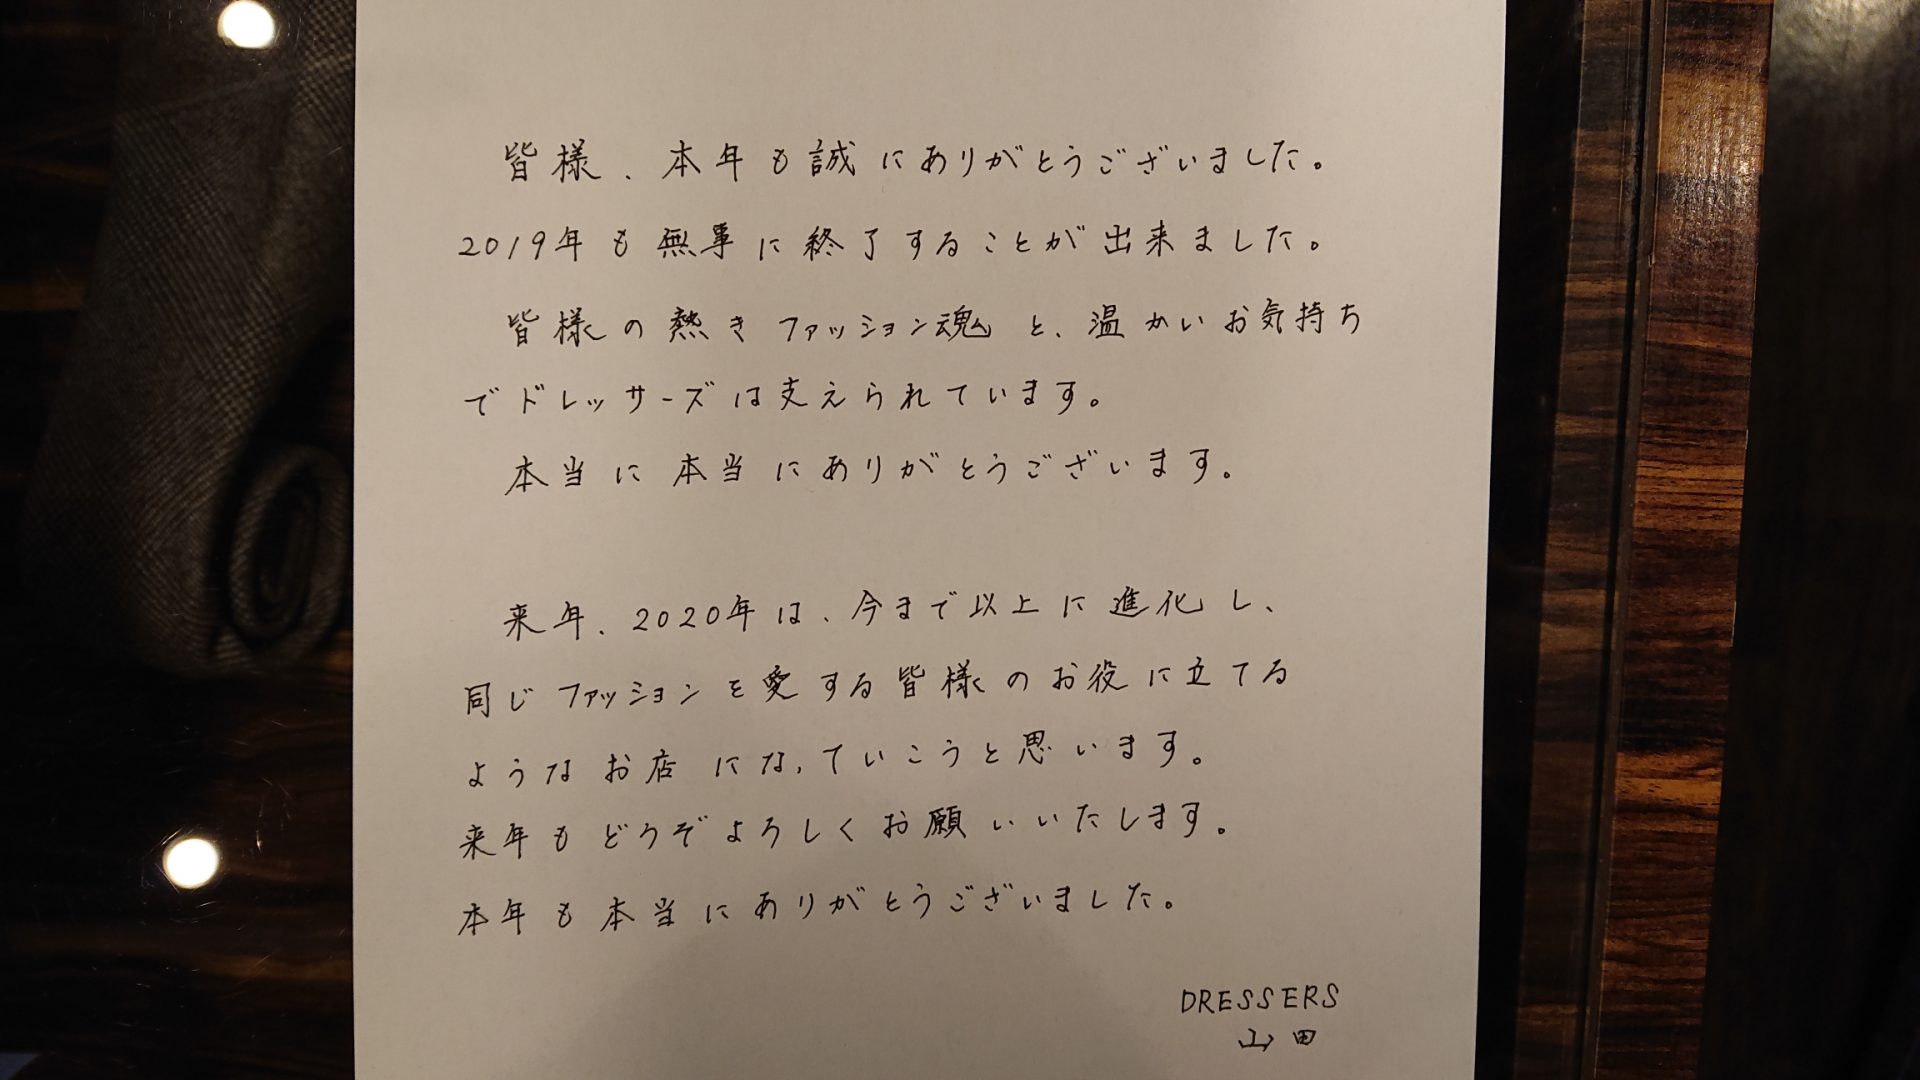 皆様、本年も誠にありがとうございました。
2019年も無事に終了することが出来ました。
皆様の熱きファッション魂と、温かいお気持ち
でドレッサーズは支えられています。
本当に本当にありがとうございます。
来年、2020年は、今まで以上に進化し、
同じファッションを愛する皆様のお役に立てる
ようなお店になっていこうと思います。
来年もどうぞよろしくお願いいたします。
本年も本当にありがとうございました。
DRESSERS
山田